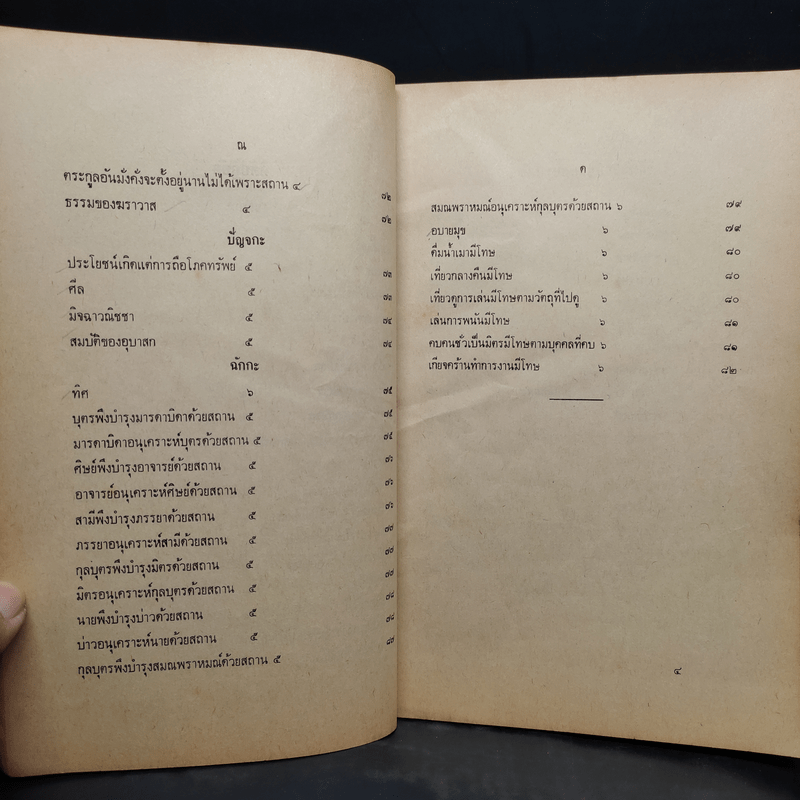 ณ
ตระกูลอันมั่งคั่งจะตั้งอยู่นานไม่ได้เพราะสถาน ๔ ๗๒
ธรรมของฆราวาส ๔ ๗๒
ปัญจกะ
ประโยชน์เกิดแต่การถือโภคทรัพย์ ๕ ๗๓
ศีล ๕ ๗๓
มิจฉาวณิชชา ๕ ๗๔
สมบัติของอุบาสก ๕ ๗๔
ฉักกะ
ทิศ ๖ ๗๕
บุตรพึงบำรุงมารดาบิดาด้วยสถาน ๕ ๗๕
มารดาบิดาอนุเคราะห์บุตรด้วยสถาน ๕ ๗๕
ศิษย์พึงบำรุงอาจารย์ด้วยสถาน ๕ ๗๖
อาจารย์อนุเคราะห์ศิษย์ด้วยสถาน ๕ ๗๖
สามีพึงบำรุงภรรยาด้วยสถาน ๕ ๗๖
ภรรยาอนุเคราะห์สามีด้วยสถาน ๕ ๗๗
กุลบุตรพึงบำรุงมิตรด้วยสถาน ๕ ๗๗
มิตรอนุเคราะห์กุลบุตรด้วยสถาน ๕ ๗๗
นายพึงบำรุงบ่าวด้วยสถาน ๕ ๗๘
บ่าวอนุเคราะห์นายด้วยสถาน ๕ ๗๘
กุลบุตรพึงบำรุงสมณพราหมณ์ด้วยสถาน ๕
ด
สมณพราหมณ์อนุเคราะห์กุลบุตรด้วยสถาน ๖ ๗๙
อบายมุข ๖ ๗๙
ดื่มน้ำเมามีโทษ ๖ ๘๐
เที่ยวกลางคืนมีโทษ ๖ ๘๐
เที่ยวดูการเล่นมีโทษตามวัตถุที่ไปดู ๖ ๘๐
เล่นการพนันมีโทษ ๖ ๘๑
คบคนชั่วเป็นมิตรมีโทษตามบุคคลที่คบ ๖ ๘๑
เกียจคร้านทำการงานมีโทษ ๖ ๘๒
๔